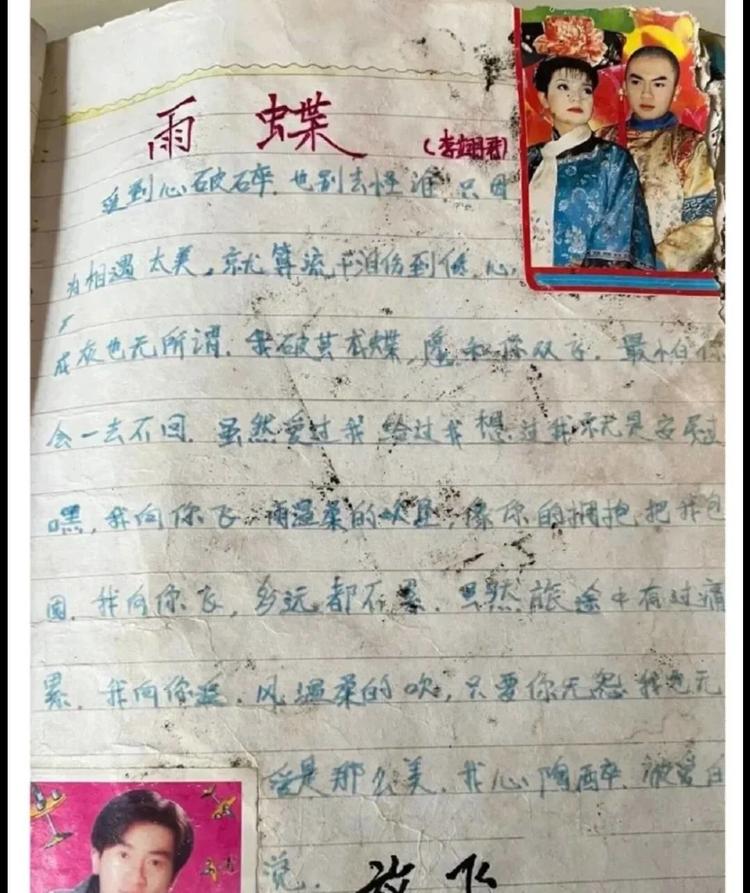 雨 蝶 (李翊君)
爱到心破碎.也别去怪谁.只因
为相遇太美.就算流干泪伤到底.心
成灰也无所谓.我破茧成蝶,愿和你双飞.最怕你
会一去不回.虽然爱过我给过我想过我就是安
嘿,我向你飞 雨温柔的,像你的拥抱把我包
围.我向你飞,多远都不累.虽然旅途中有过痛
累.我向你飞.风温柔的吹,只要你无怨我也无
爱是那么美.我心陶醉.被爱
觉. 放飞